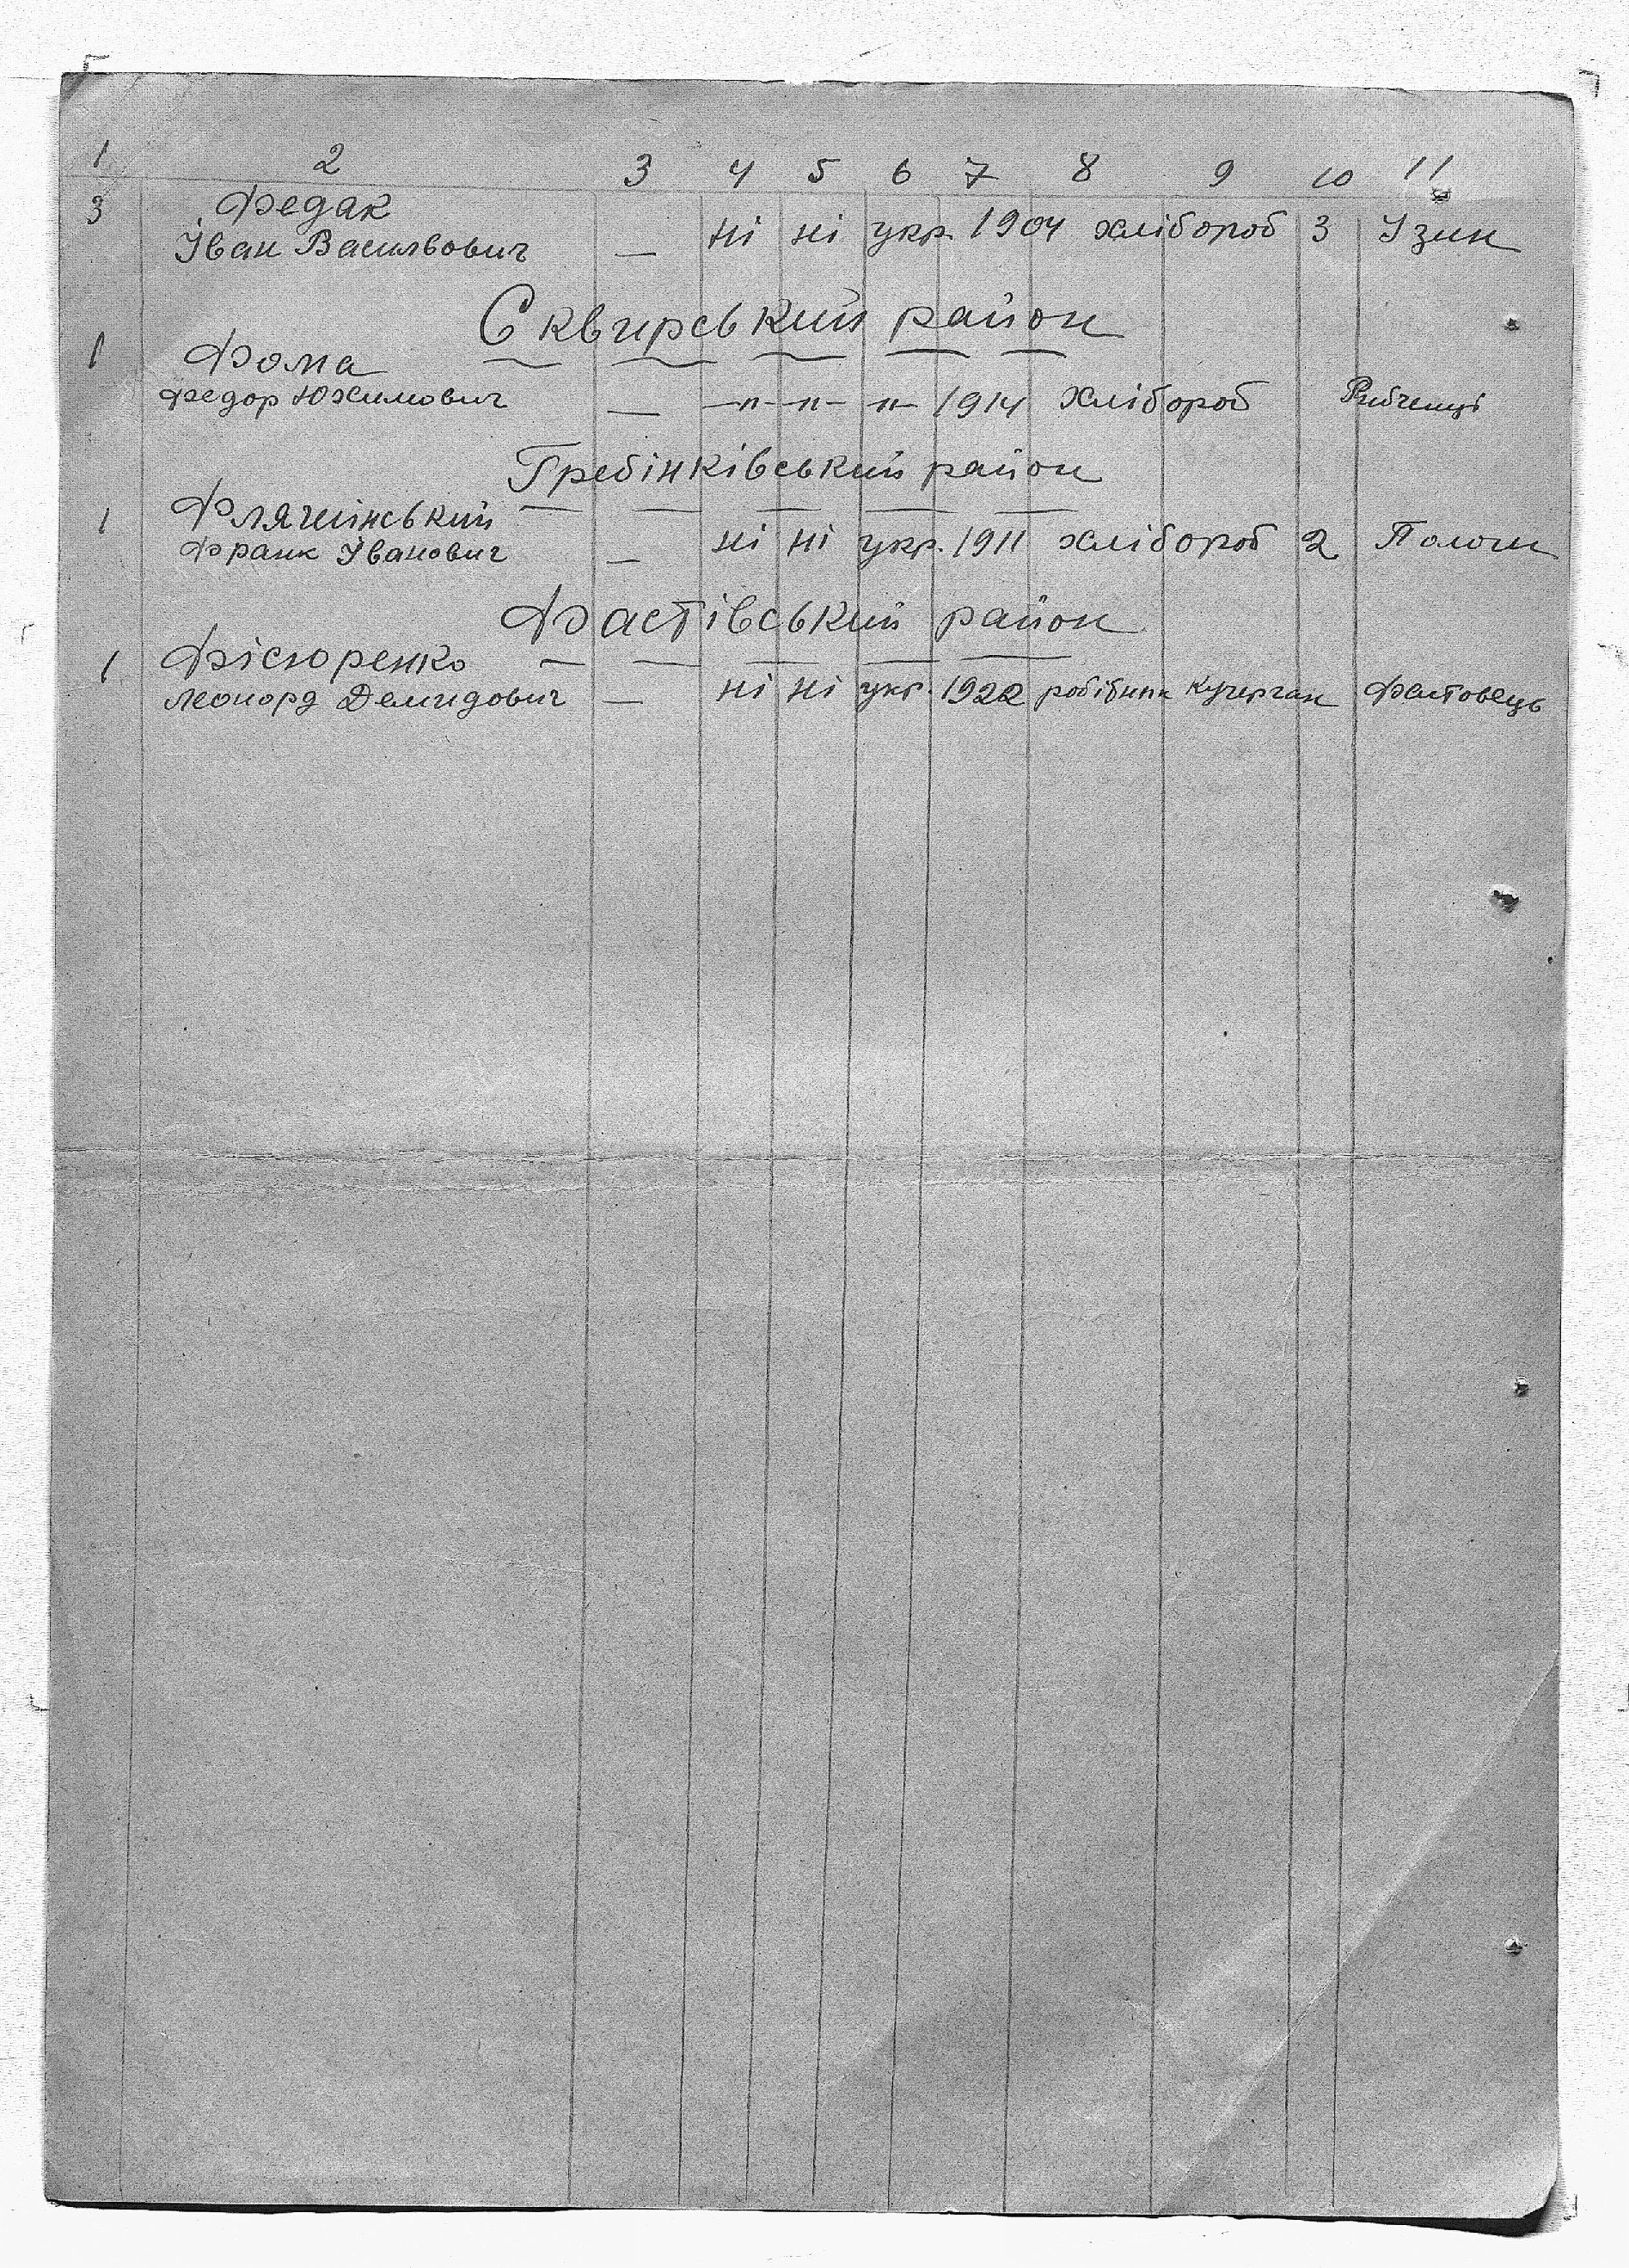 1 2 3 4 5 6 7 8 9 10 11
3 Федак
Іван Васильович — ні ні укр. 1904 хлібороб 3 Узин
Сквирський район
1 Фома
Федор Юхимович — —"— —"— —"— 1914 хлібороб Рибченці
Гребінківський район
1 Флячинський
Франк Іванович — ні ні укр. 1911 хлібороб 2 Пологи
Фастівський район
1 Фісюренко
Леонорд Демидович — ні ні укр. 1922 робітник Кучерган Фастовець